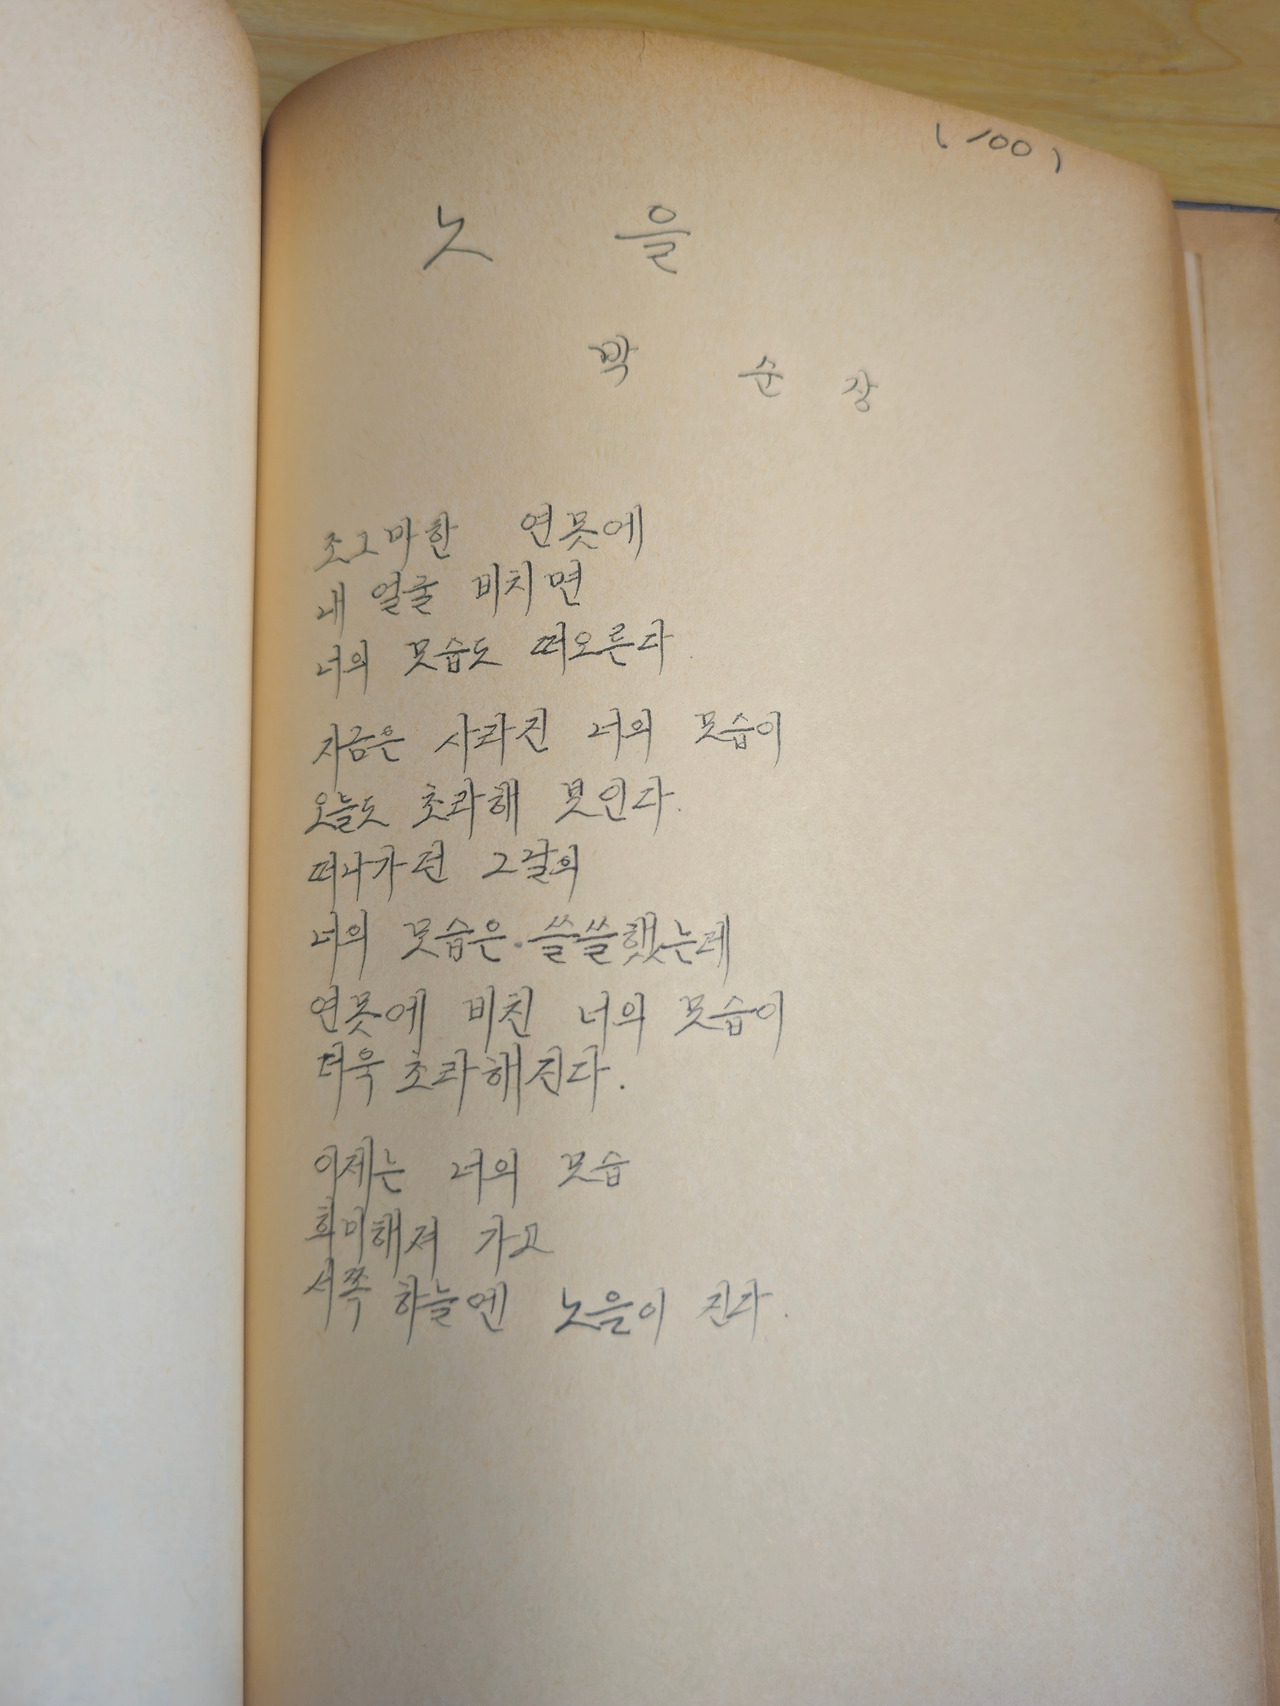 (100)
노 을
박 순 장
조그마한 연못에
내 얼굴 비치면
너의 모습도 떠오른다.
지금은 사라진 너의 모습이
오늘도 초라해 뵷인다.
떠나가던 그날의
너의 모습은 쓸쓸했는데
연못에 비친 너의 모습이
더욱 초라해진다.
이제는 너의 모습
희미해져 가고
서쪽 하늘엔 노을이 진다.